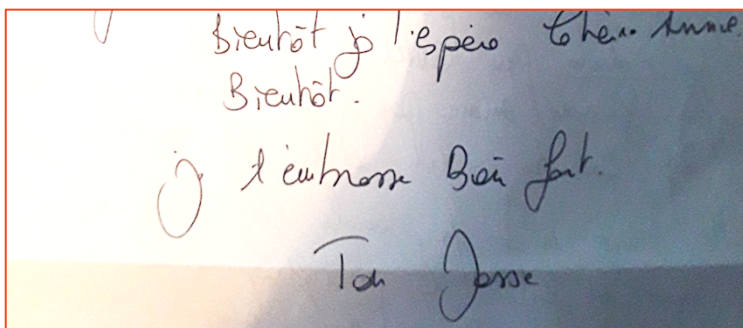 Bientôt j l'espère Chère Anne.
Bientôt.
j t'embrasse Bien fort.
Ton Josse